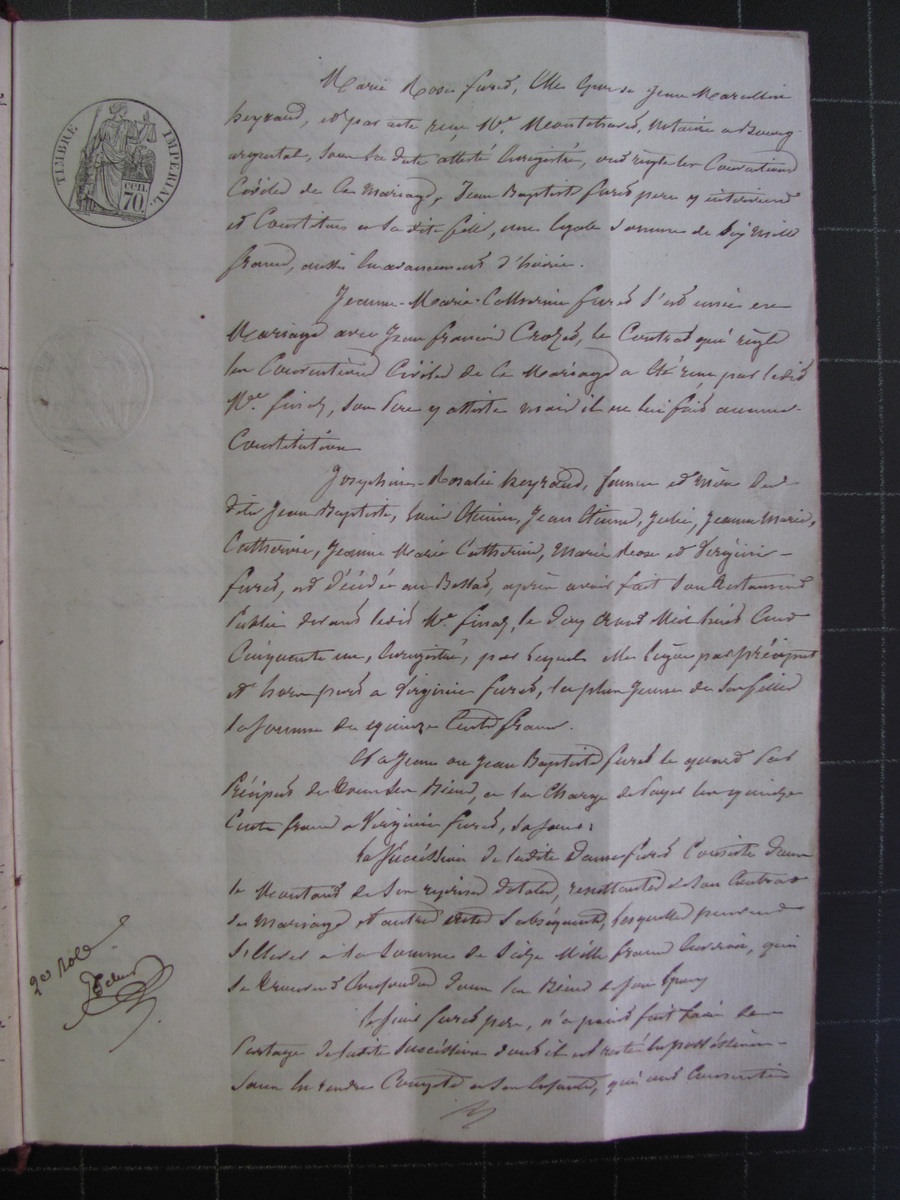 Marie Rose fures, elle épousa Jean Marcellin
heyraud, et par acte reçu Me. Montchovet, notaire a Bourg
argental, sous sa date attesté Enregistré, ont réglé les Conventions
Civiles de ce Mariage, Jean Baptiste fures pere y intervient
et Constitue a sa dite fille, une égale somme de six Mille
francs, aussi en avancement d'hoirie.
Jeanne-Marie-Catherine fures s'est unie en
Mariage avec Jean francois Crozet, le Contrat qui règle
les Conventions Civiles de ce Mariage a été reçu par ledit
Me. finaz, son Pere y assiste mais il ne lui fait aucune
Constitution
Josephine-Rosalie heyraud, femme et mère des
dits Jean Baptiste, Etienne, Jean Etienne, Julie, Jeanne Marie,
Catherine, Jeanne Marie Catherine, Marie Rose et Virginie
fures, est Décédée au Bessat, après avoir fait son testament
Public devant ledit Me. finaz, le dix Mil huit Cent
Cinquante un, Enregistré, par lequel elle lègue par préciput
et hors part a Virginie fures, la plus jeune de ses filles
la somme de quinze Cents francs.
Et a Jean ou Jean Baptiste fures le quart par
Préciput de tous ses Biens, a la Charge de Payer les quinze
Cents francs a Virginie fures, sa soeur;
La Succéssion de ladite Dame fures Consiste dans
le Montant de ses reprises dotales, resultantes de son Contrat
de Mariage et autres actes Subséquents, lesquelles peuvent
S'élever à la Somme de Seize Mille francs Environ, qui
se trouvent Confondus dans les Biens de son Epoux
Le sieur fures pere, n'a point fait faire le
Partage de ladite Succéssion dont il est resté en possession
Sans en rendre Compte a ses Enfants, qui ont Consenti
TIMBRE IMPÉRIAL.
CEN.
70
2e Role